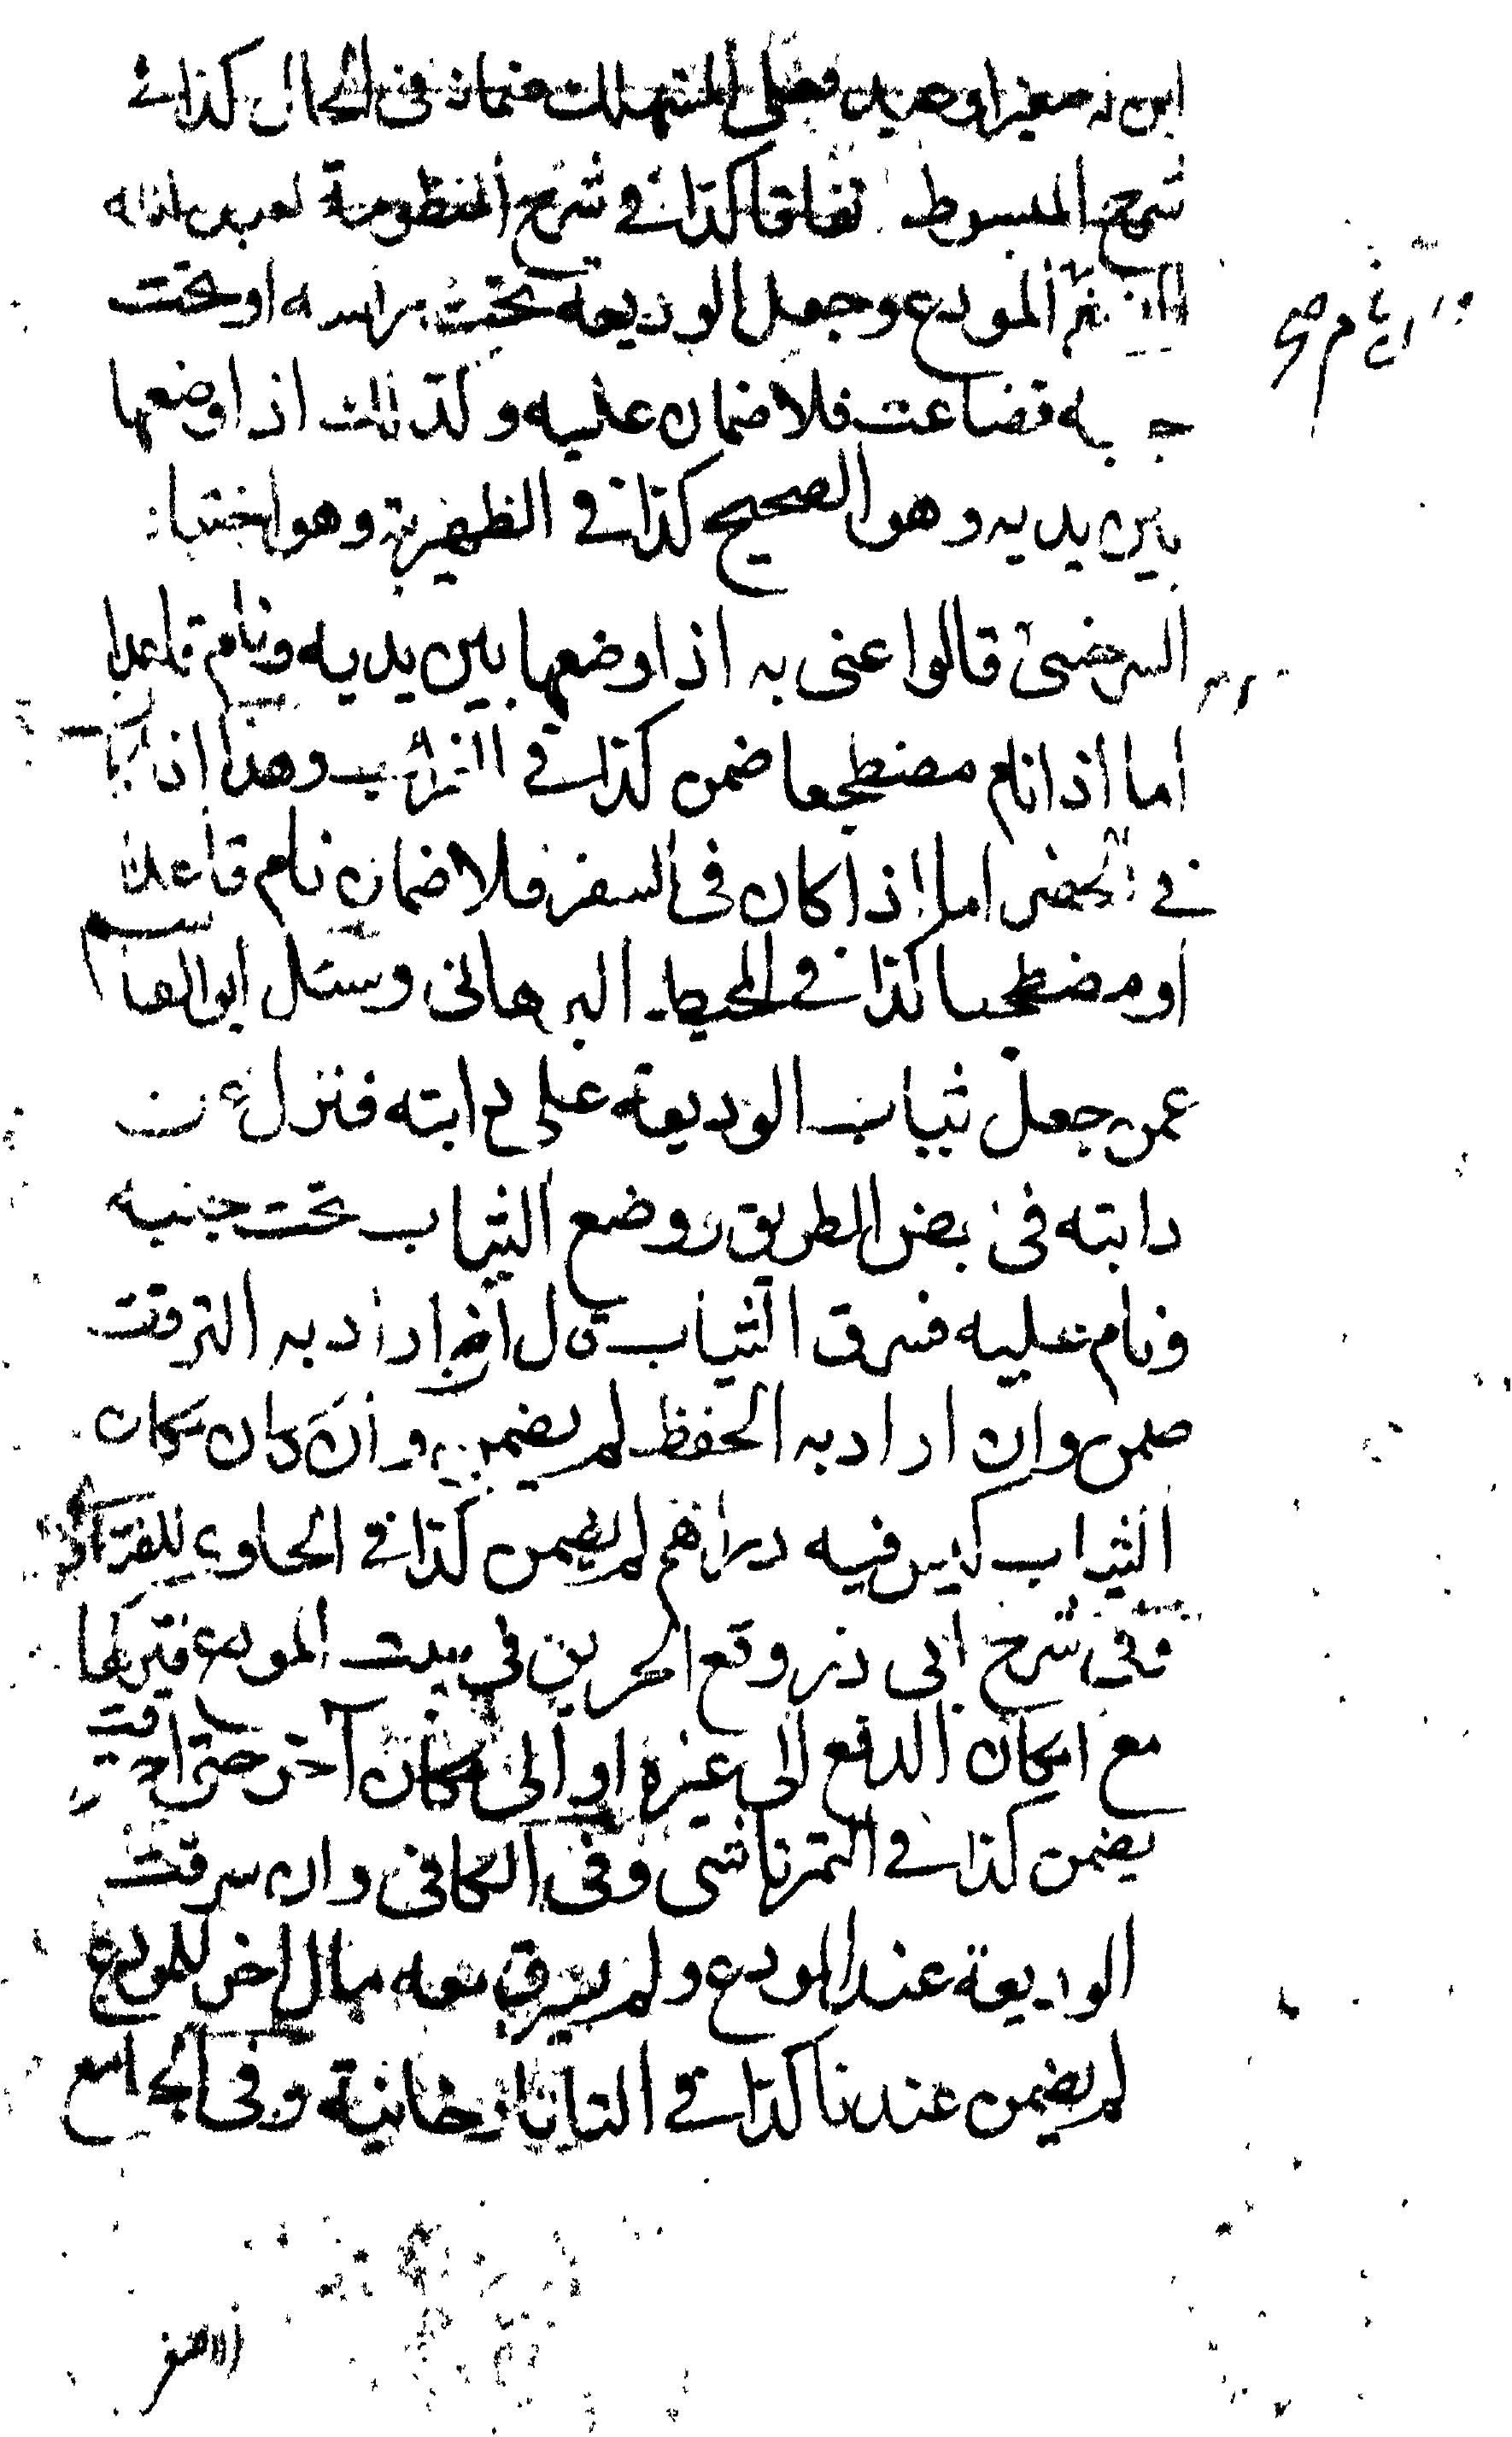 ابن له صغير او عبد فعلى المستهلك ضمانه فى الحال كذا فى
شرح المبسوط تفاقا كذا فى شرح المنظومة
المودع وجعل الوديعة تحت راسه او تحت
جنبه فضاعت فلا ضمان عليه وكذلك اذا وضعها
بين يديه وهو الصحيح كذا فى الظهيرية وهو اختيار
السرخسى قالوا عنى به اذا وضعها بين يديه ونام قاعدا
اما اذا نام مضطجعا ضمن كذا فى وهذا اذا
فى الحضر اما اذا كان فى السفر فلا ضمان نام قاعدا
او مضطجعا كذا فى المحيط البرهانى وسئل ابو القاسم
عمن جعل ثياب الوديعة على دابته فنزل عن
دابته فى بعض الطريق ووضع الثياب تحت جنبه
ونام عليه فسرق الثياب قال ان اراد به الترفق
ضمن وان اراد به الحفظ لم يضمن وان كان مكان
الثياب كيس فيه دراهم لم يضمن كذا فى الحاوى للفتاوى
وفى شرح ابى ذر وقع الحريق فى بيت المودع فتركها
مع امكان الدفع الى غيره او الى مكان آخر حتى احترقت
يضمن كذا فى التمرتاشى وفى الكافى وان سرقت
الوديعة عند المودع ولم يسرق معه مال اخر للمودع
لم يضمن عندنا كذا فى التاتارخانية وفى الجامع